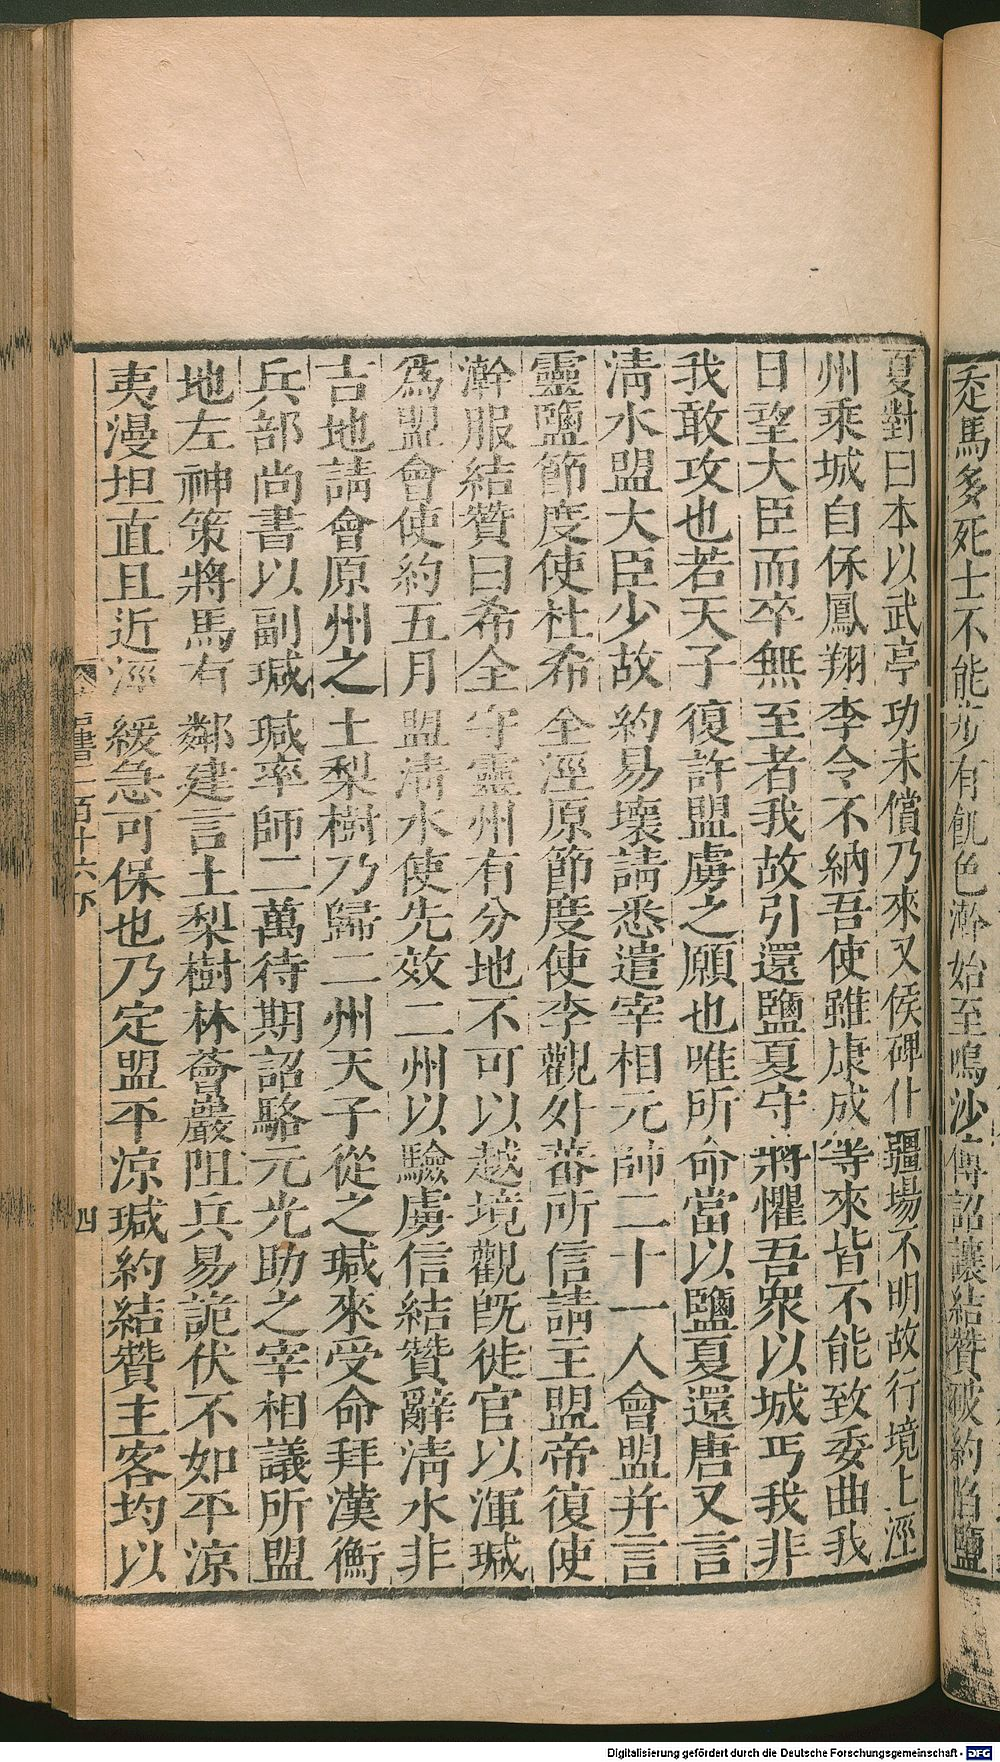 走馬多死士不能步有飢色澣始至鳴沙傳詔讓結贊破約陷鹽
夏對曰本以武亭功未償乃來又候碑仆疆場不明故行境上涇
州乘城自保鳳翔李令不納吾使雖康成等來皆不能致委曲我
日望大臣而卒無至者我故引還鹽夏守將懼吾衆以城丐我非
我敢攻也若天子復許盟虜之願也唯所命當以鹽夏還唐又言
淸水盟大臣少故約易壞請悉遣宰相元帥二十一人會盟并言
靈鹽節度使杜希全涇原節度使李觀外蕃所信請主盟帝復使
澣服結贊曰希全守靈州有分地不可以越境觀旣徙官以渾瑊
爲盟會使約五月盟淸水使先效二州以驗虜信結贊辭淸水非
吉地請會原州之土梨樹乃歸二州天子從之瑊來受命拜漢衡
兵部尚書以副瑊瑊率師二萬待期詔駱元光助之宰相議所盟
地左神策將馬有鄰建言土梨樹林薈巖阻兵易詭伏不如平涼
夷漫坦直且近涇緩急可保也乃定盟平涼瑊約結贊主客均以
唐書二百十六下
四
Digitalisierung gefördert durch die Deutsche Forschungsgemeinschaft - DFG